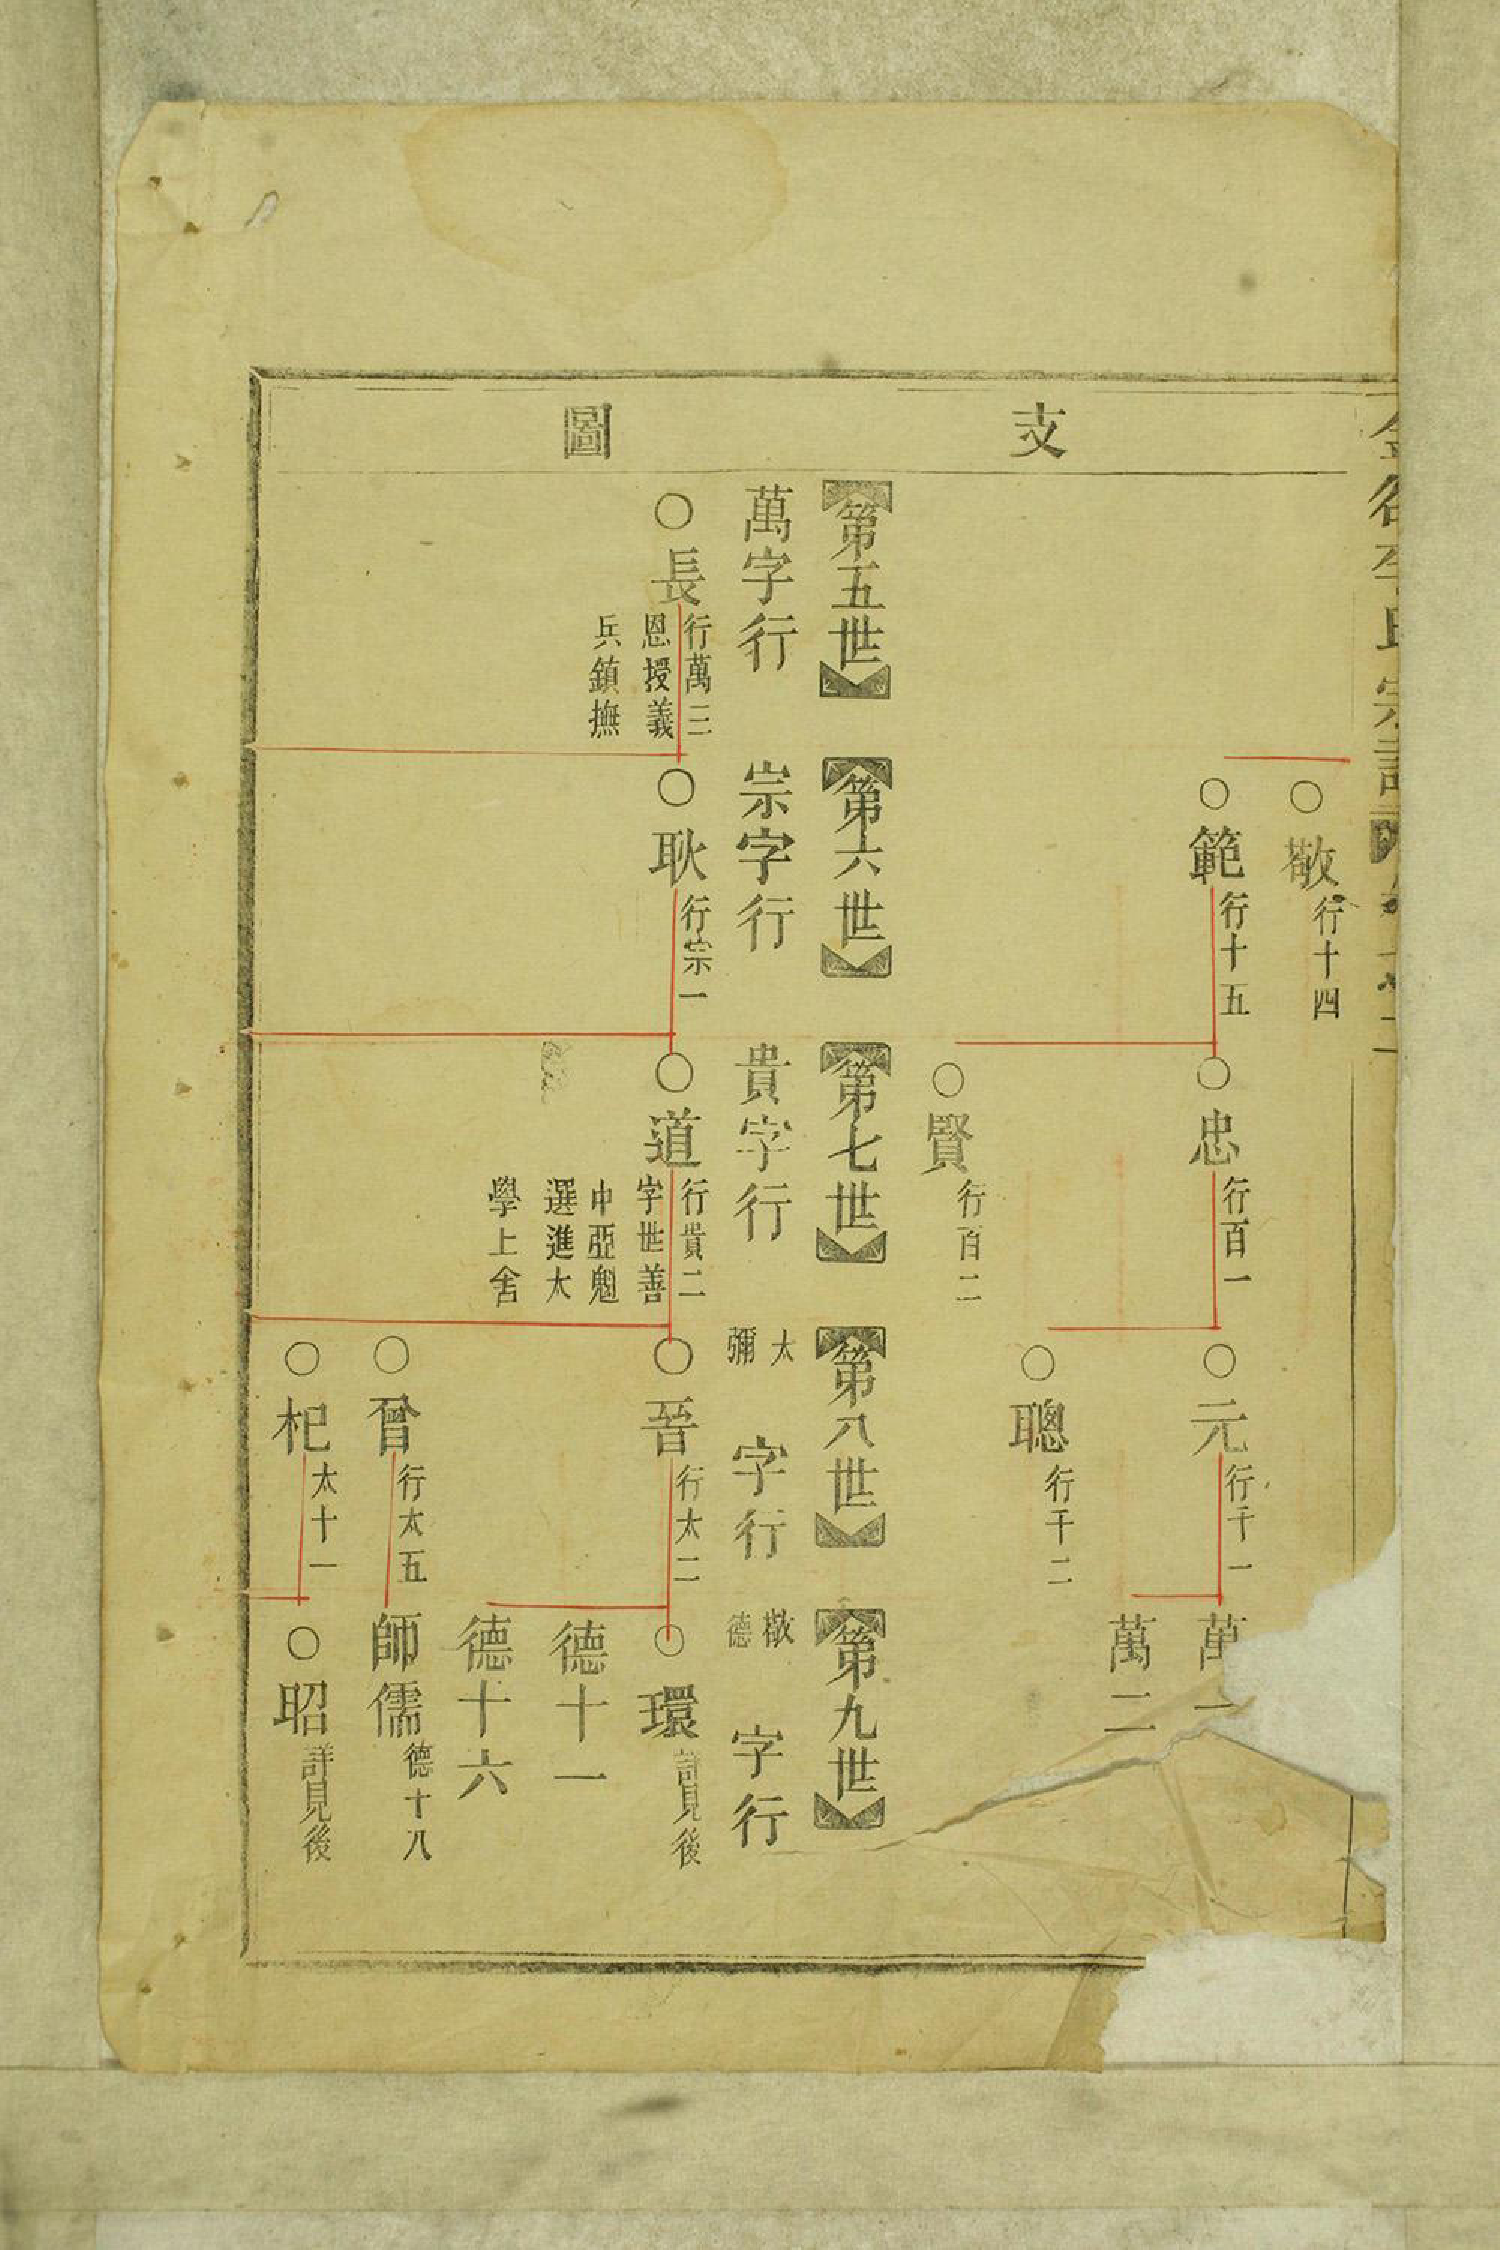 支圖
敬行十四
範行十五
忠行百一
元行千一
萬一
聰行千二
萬二
賢行百二
第五世
第六世
第七世
第八世
第九世
萬字行
宗字行
貴字行
太彌字行
敬德字行
長行萬三恩授義兵鎮撫
耿行宗一
道行貴二字世善中亞魁選進大學上舍
晉行太二
環詳見後
德十一
德十六
曾行太五
師儒德十八
杞太十一
昭詳見後